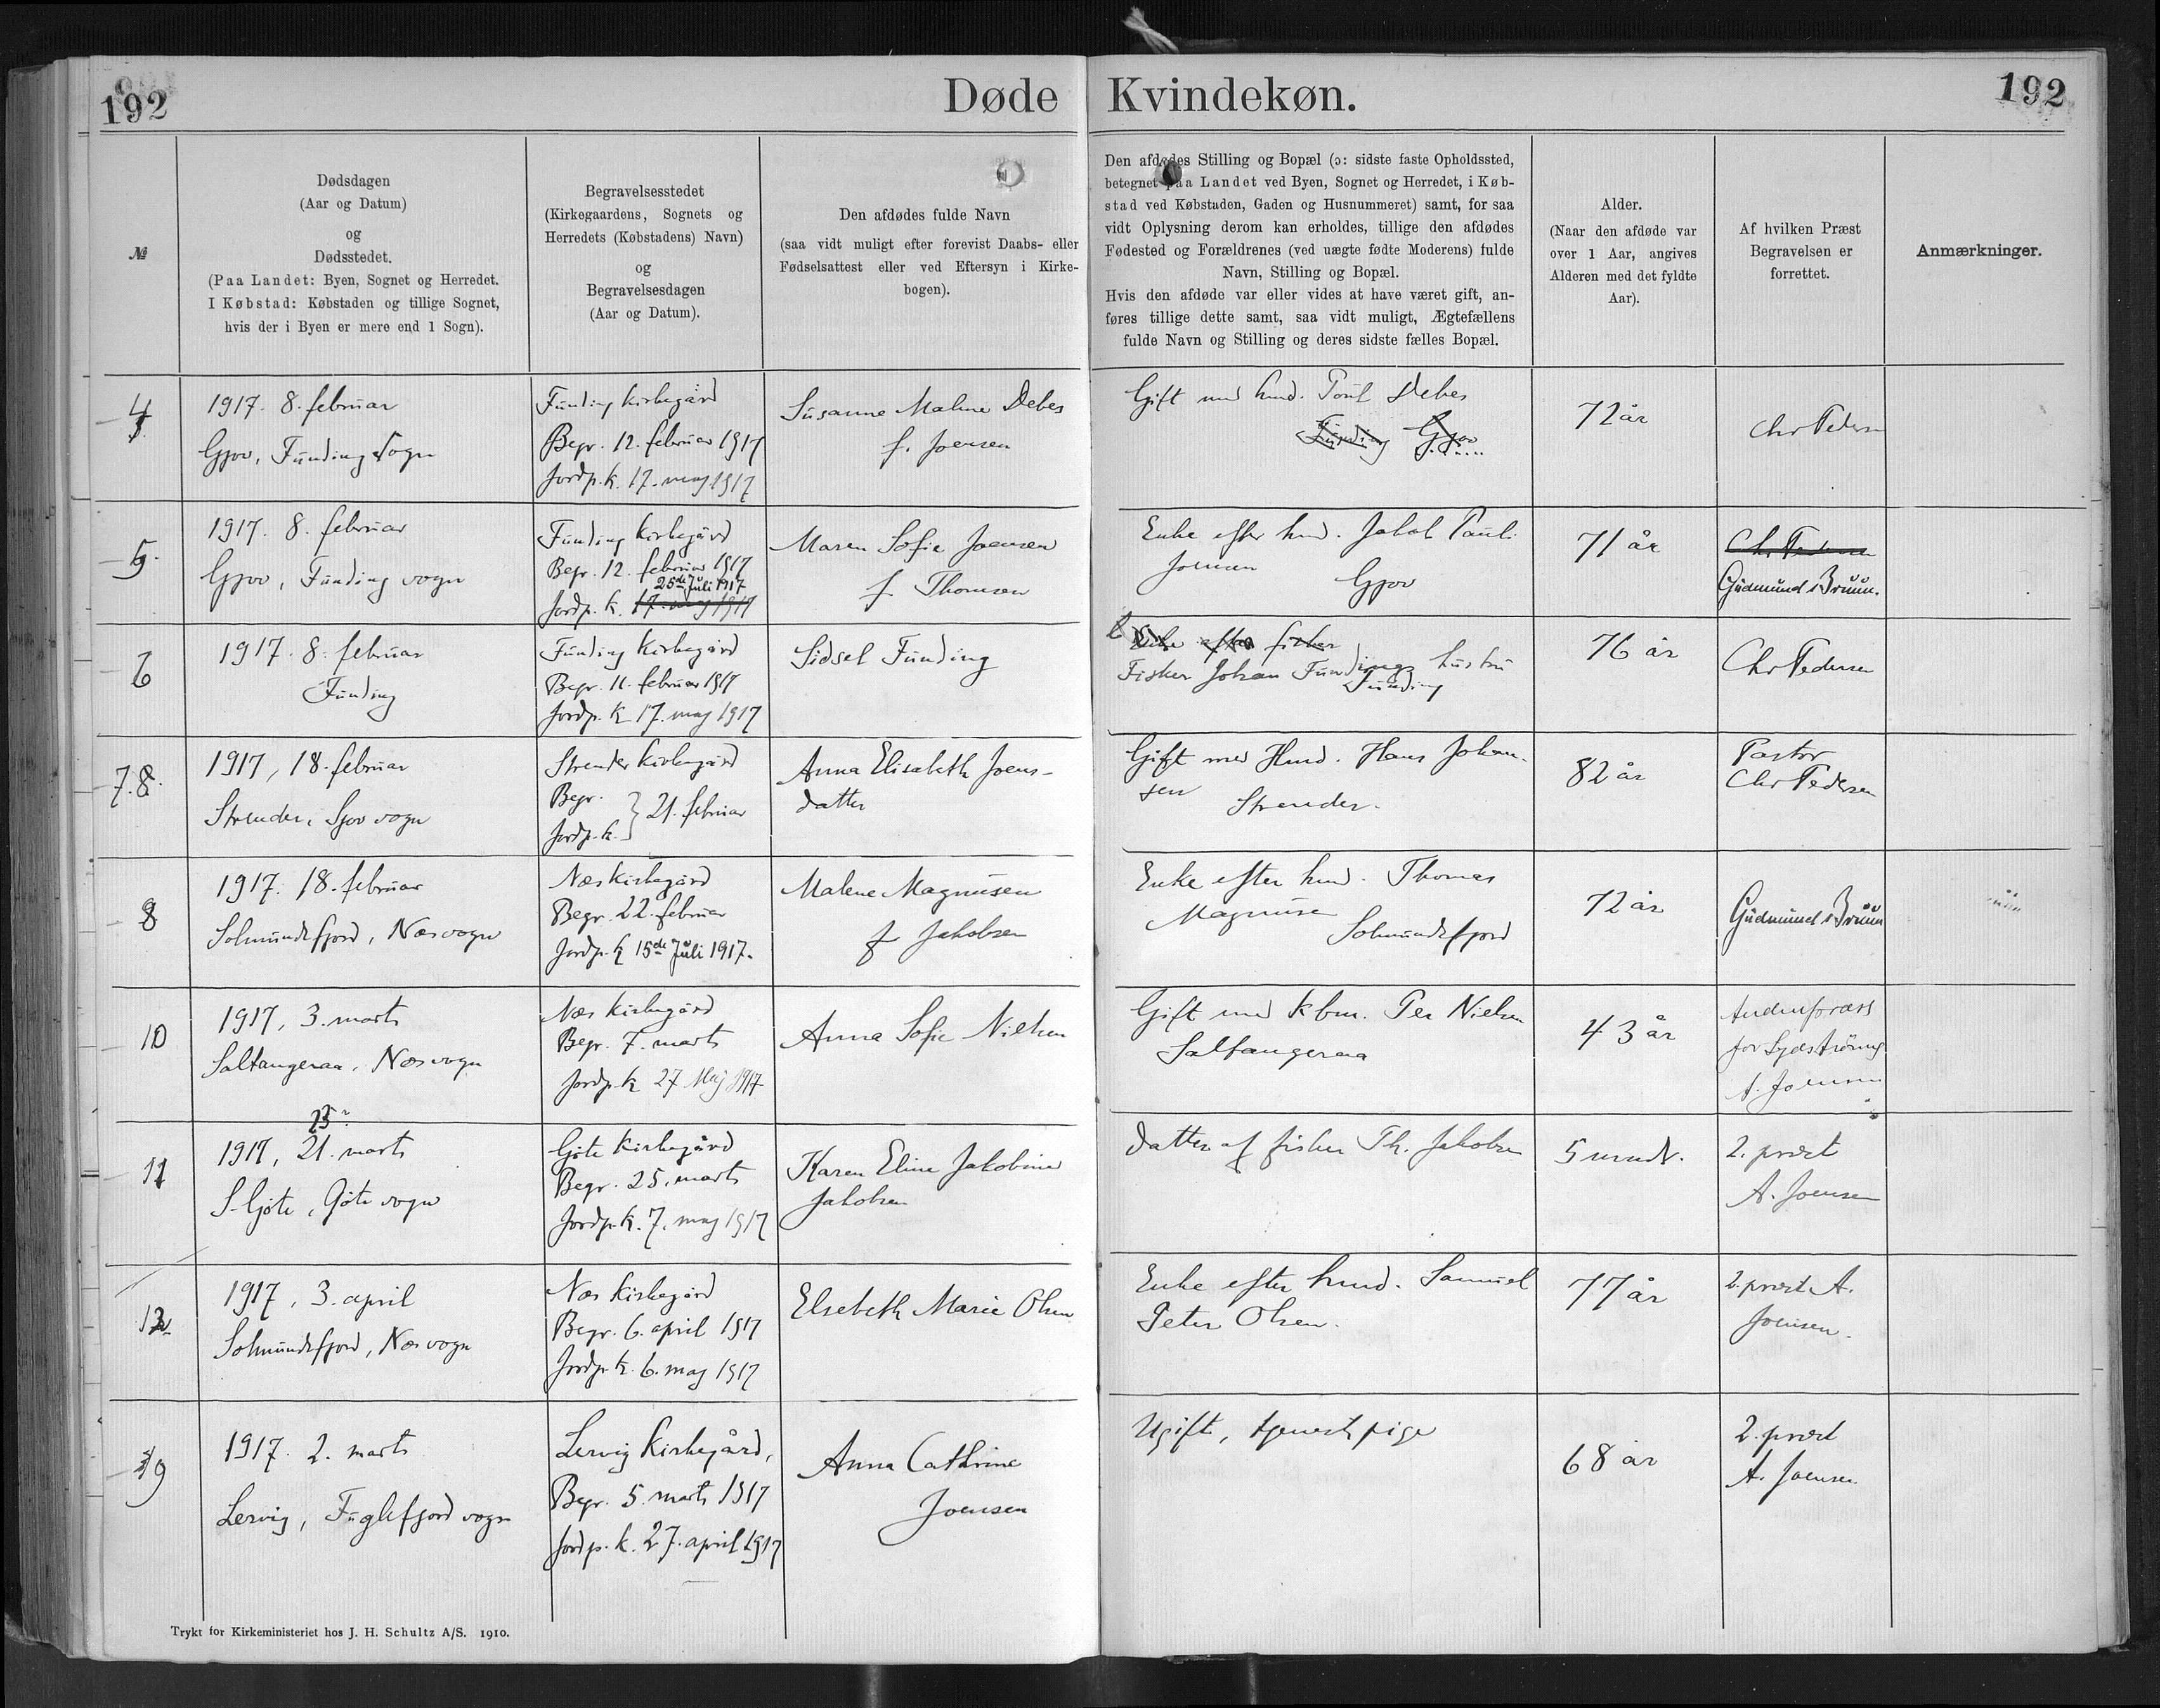 192
Døde
Kvindekøn.
192
№
Dødsdagen
(Aar og Datum)
og
Dødsstedet.
(Paa Landet: Byen, Sognet og Herredet.
I Købstad: Købstaden og tillige Sognet,
hvis der i Byen er mere end 1 Sogn).
Begravelsesstedet
(Kirkegaardens, Sognets og
Herredets (Købstadens) Navn)
og
Begravelsesdagen
(Aar og Datum).
Den afdødes fulde Navn
(saa vidt muligt efter forevist Daabs- eller
Fødselsattest eller ved Eftersyn i Kirke-
bogen).
Den afdødes Stilling og Bopæl (ɔ: sidste faste Opholdssted,
betegnet paa Landet ved Byen, Sognet og Herredet, i Køb-
stad ved Købstaden, Gaden og Husnummeret) samt, for saa
vidt Oplysning derom kan erholdes, tillige den afdødes
Fødested og Forældrenes (ved uægte fødte Moderens) fulde
Navn, Stilling og Bopæl.
Hvis den afdøde var eller vides at have været gift, an-
føres tillige dette samt, saa vidt muligt, Ægtefællens
fulde Navn og Stilling og deres sidste fælles Bopæl.
Alder.
(Naar den afdøde var
over 1 Aar, angives
Alderen med det fyldte
Aar).
Af hvilken Præst
Begravelsen er
forrettet.
Anmærkninger.
4
1917. 8. februar
Gjov, Funding sogn
Funding kirkegård
Begr. 12. februar 1917
Jordp. k. 17. maj 1917
Susanne Malene Debes
f. Joensen
Gift med hmd. Poul Debes
Funding Gjov
72 år
Chr Pedersen
5.
1917. 8. februar
Gjov, Funding sogn
Funding kirkegård
Begr. 12. februar 1917
25de Juli 1917
Jordp. k. 17. maj 1917
Maren Sofie Joensen
f. Thomsen
Enke efter hmd. Jakob Paul.
Joensen
Gjov
71 år
Chr Pedersen
Gudmund Bruun.
6
1917. 8. februar
Funding
Funding Kirkegård
Begr. 11. februar 1917
Jordp. k 17. maj 1917
Sidsel Funding
Enke efter fisker
Fisker Johan Fundings hustru
Funding
76 år
Chr Pedersen
7.8.
1917, 18. februar
Strender, Sjov sogn
Strender kirkegård
Begr.
Jordp. k. } 21. februar
Anna Elisabeth Joens-
datter
Gift med Hmd. Hans Johan-
sen
Strender.
82 år
Pastor
Chr Pedersen
8
1917. 18. februar
Solmundefjord, Nes sogn
Nes kirkegård
Begr. 22. februar
Jordp. k 15de Juli 1917.
Malene Magnusen
f Jakobsen
Enke efter hmd. Thomas
Magnusen
Solmundefjord
72 år
Gudmund Bruun
10
1917, 3. marts
Saltangeraa, Nes sogn
Nes kirkegård
Begr. 7. marts
Jordp. k 27 Maj 1917
Anna Sofie Nielsen
Gift med kbm. Per Nielsen
Saltangeraa
43 år
Andenpræst
for Sydstrømø
A. Joensen
11
1917, 21. marts
S-Gjøte, Gøte sogn
Gøte kirkegård
Begr. 25. marts
Jordp. k. 7. maj 1917
Karen Eline Jakobine
Jakobsen
Datter af fisker Th. Jakobsen
5 mndr.
2. præst
A. Joensen
12
1917, 3. april
Solmundefjord, Nes sogn
Nes kirkegård
Begr. 6. april 1917
Jordp. k. 6. maj 1917
Elsebeth Marie Olsen
Enke efter hmd. Samuel
Peter Olsen.
77 år
2. præst A.
Joensen.
9
1917. 2. marts
Lervig, Fuglefjord sogn
Lervig kirkegård,
Begr. 5. marts 1917
Jordp. k. 27. april 1917
Anna Cathrine
Joensen
Ugift, tjenestepige
68 år
2. præst
A. Joensen
Trykt for Kirkeministeriet hos J. H. Schultz A/S. 1910.